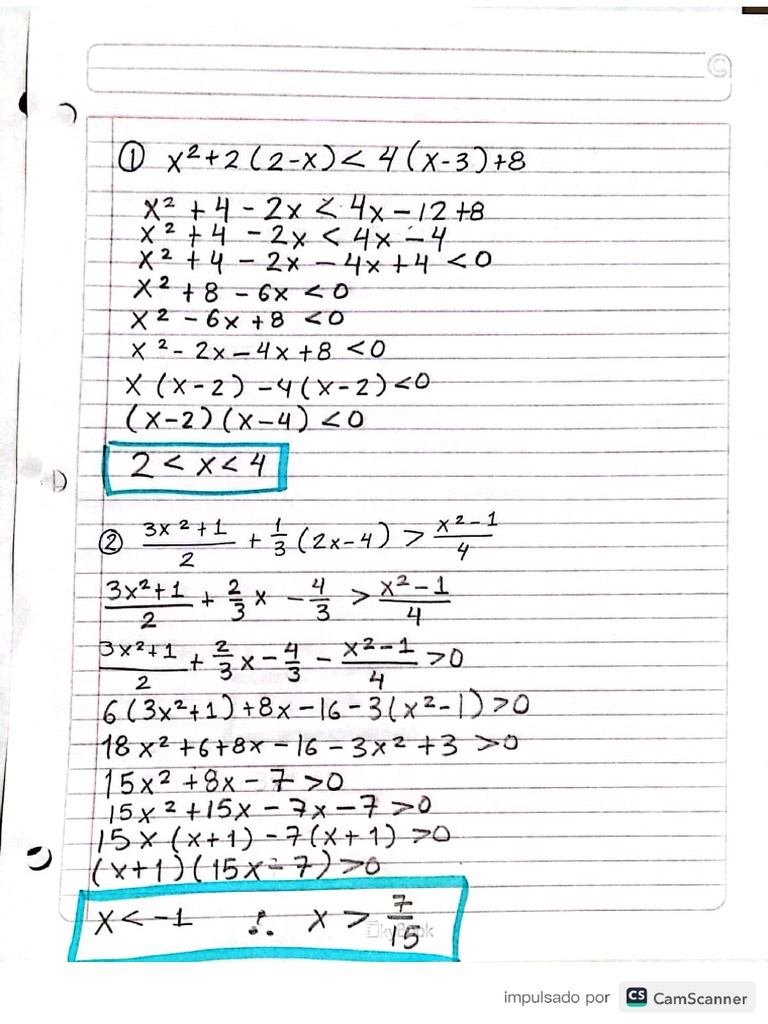 ① x²+2(2-x)<4(x-3)+8
x²+4-2x<4x-12+8
x²+4-2x<4x-4
x²+4-2x-4x+4<0
x²+8-6x<0
x²-6x+8<0
x²-2x-4x+8<0
x(x-2)-4(x-2)<0
(x-2)(x-4)<0
2<x<4
② (3x²+1)/2 + 1/3(2x-4) > (x²-1)/4
(3x²+1)/2 + 2/3x - 4/3 > (x²-1)/4
(3x²+1)/2 + 2/3x - 4/3 - (x²-1)/4 >0
6(3x²+1)+8x-16-3(x²-1)>0
18x²+6+8x-16-3x²+3>0
15x²+8x-7>0
15x²+15x-7x-7>0
15x(x+1)-7(x+1)>0
(x+1)(15x-7)>0
x<-1 ∴ x>7/15
impulsado por CS CamScanner